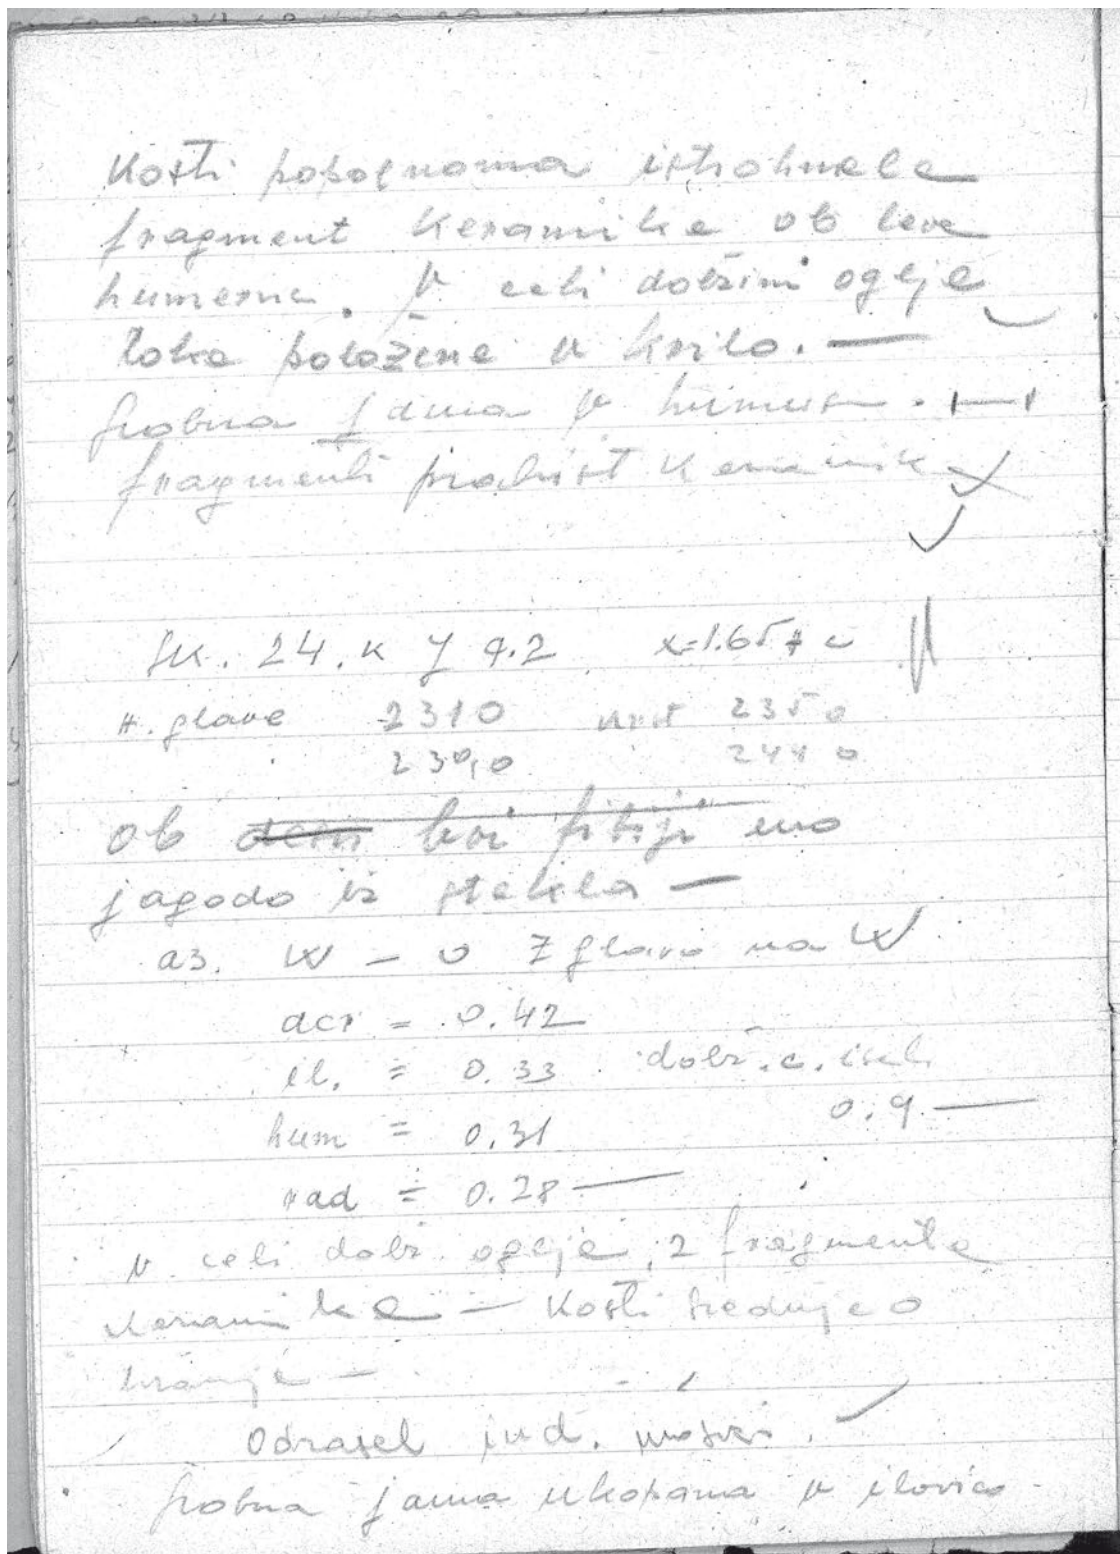 Kosti popolnoma istrohnele
fragment keramike ob leve
humerusu. V celi dolžini oglje
Roke položene v krilo. —
Grobna jama v humusu.
fragmenti prahist keramik
Sk. 24. K y 9.2 x=1.65
n. glave 2310 2350
2390 2440
ob desni levi fibiji eno
jagodo iz stekla —
az. W – O Z glavo na W
acr = 0.42
il. = 0.33 dolž. c.
0.9 —
hum = 0.31
rad = 0.28 —
v celi dolž. oglje, 2 fragmenta
keramike — Kosti srednje o
hranje —
Odrasel ind. moški.
Grobna jama vkopana v ilovico